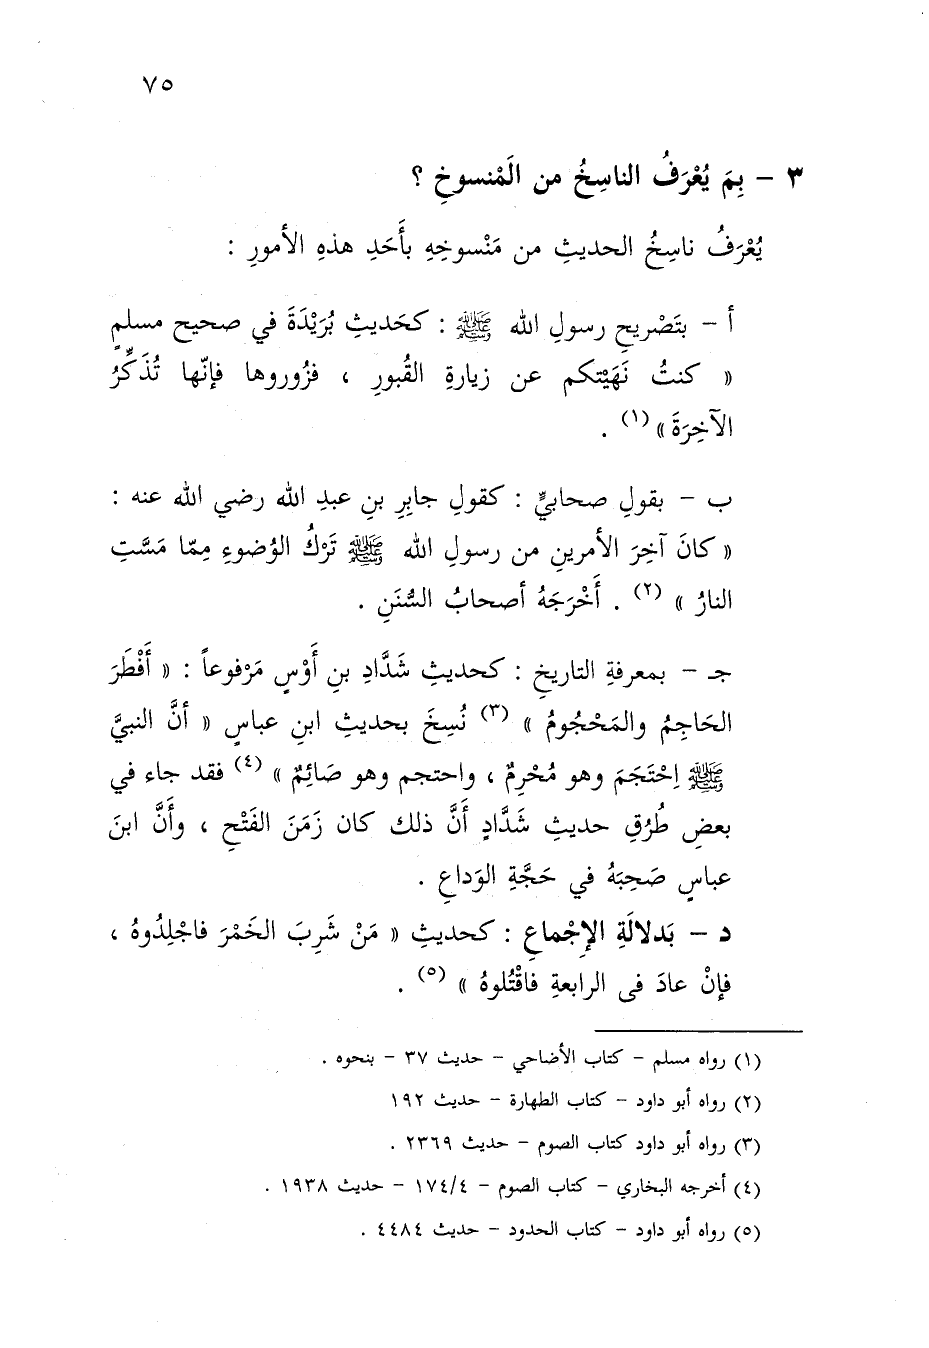 ٧٥
٣ – بِمَ يُعْرَفُ الناسِخُ من الَمْنسوخِ ؟
يُعْرَفُ ناسِخُ الحديثِ من مَنْسوخِهِ بأَحَدِ هذهِ الأمورِ :
أ – بتَصْريحِ رسولِ الله ﷺ : كحَديثِ بُرَيْدَةَ في صحيح مسلمٍ
« كنتُ نَهَيْتكم عن زيارةِ القُبورِ ، فزُوروها فإنّها تُذَكِّرُ
الآخِرَةَ » (١) .
ب – بقولِ صحابيٍّ : كقولِ جابِرِ بنِ عبدِ الله رضي الله عنه :
« كانَ آخِرَ الأمرينِ من رسولِ الله ﷺ تَرْكُ الوُضوءِ مِمّا مَسَّتِ
النارُ » (٢) . أَخْرَجَهُ أصحابُ السُّنَنِ .
جـ – بمعرفةِ التاريخِ : كحديثِ شَدَّادِ بنِ أَوْسٍ مَرْفوعاً : « أَفْطَرَ
الحَاجِمُ والمَحْجُومُ » (٣) نُسِخَ بحديثِ ابنِ عباسٍ « أنَّ النبيَّ
ﷺ اِحْتَجَمَ وهو مُحْرِمٌ ، واحتجم وهو صَائِمٌ » (٤) فقد جاء في
بعضِ طُرُقِ حديثِ شَدَّادٍ أَنَّ ذلك كان زَمَنَ الفَتْحِ ، وأَنَّ ابنَ
عباسٍ صَحِبَهُ في حَجَّةِ الوَداعِ .
د – بَدلالَةِ الإِجْماعِ : كحديثِ « مَنْ شَرِبَ الخَمْرَ فاجْلِدُوهُ ،
فإنْ عادَ فى الرابعةِ فاقْتُلوهُ » (٥) .
(١) رواه مسلم – كتاب الأضاحي – حديث ٣٧ – بنحوه .
(٢) رواه أبو داود – كتاب الطهارة – حديث ١٩٢
(٣) رواه أبو داود كتاب الصوم – حديث ٢٣٦٩ .
(٤) أخرجه البخاري – كتاب الصوم – ١٧٤/٤ – حديث ١٩٣٨ .
(٥) رواه أبو داود – كتاب الحدود – حديث ٤٤٨٤ .